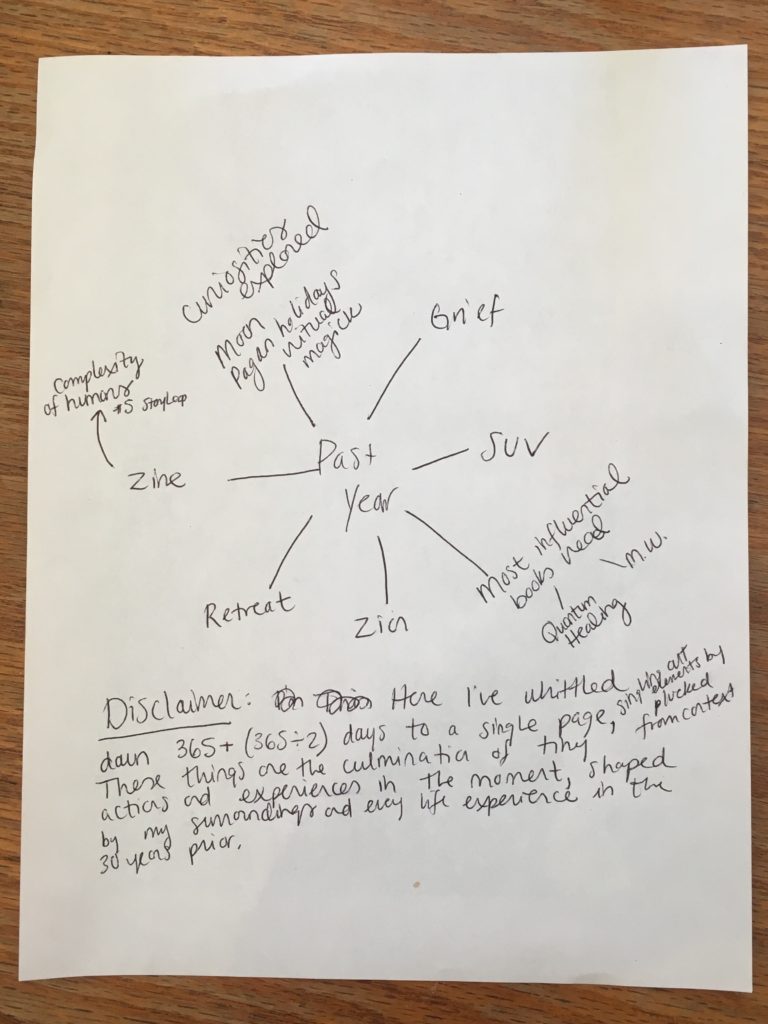 Curiosities
explored
Moon
Pagan holidays
ritual
magick
Grief
complexity
of humans
#5 Stay Loop
Zine
Past
Year
SUV
Most influential
books read
M.W.
Quantum
Healing
Retreat
Zion
Disclaimer: Here I've whittled
down 365+ (365÷2) days to a single page, singling out
elements by
plucked
from context
These things are the culmination of tiny
actions and experiences in the moment, shaped
by my surroundings and every life experience in the
30 years prior.